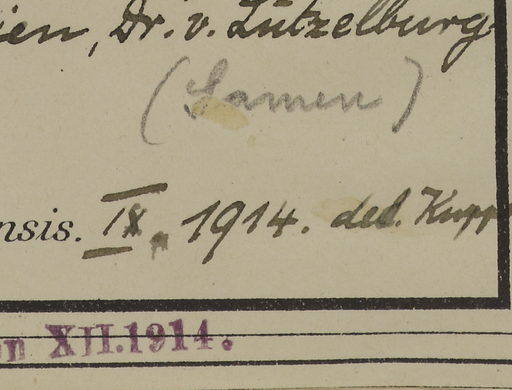 ien, Dr. v. Lützelburg
(Samen)
nsis. IX. 1914. ded. Kupp
n XII.1914.